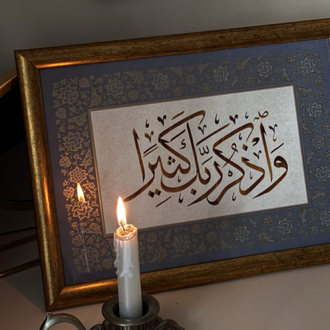 وَٱذْكُر رَّبَّكَ كَثِيرًا